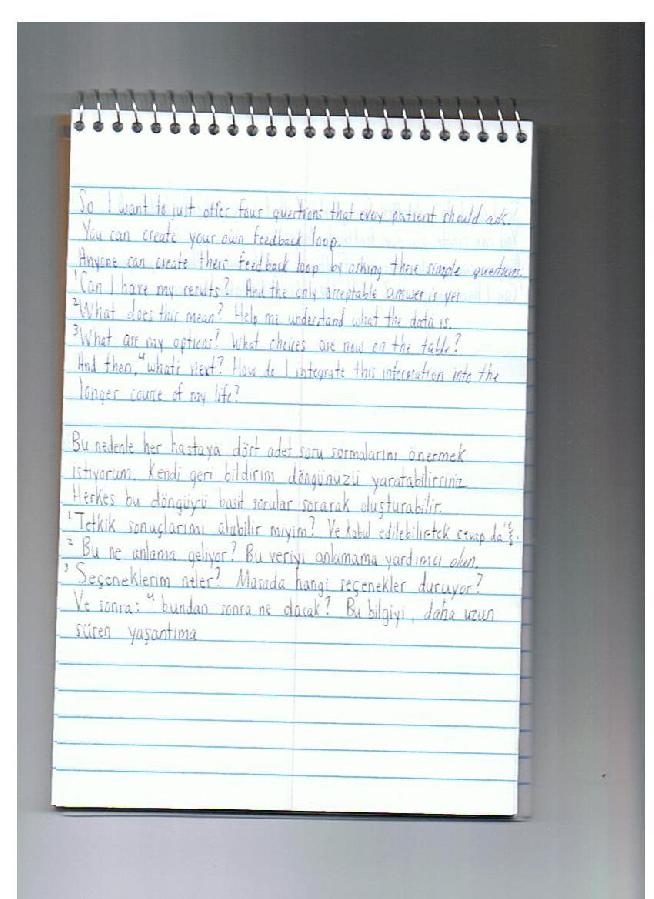 So I want to just offer four questions that every patient should ask.
You can create your own feedback loop.
Anyone can create their feedback loop by asking these simple questions.
¹Can I have my results? And the only acceptable answer is yes
²What does this mean? Help me understand what the data is.
³What are my options? What choices are now on the table?
And then, ⁴what's next? How do I integrate this information into the
longer course of my life?
Bu nedenle her hastaya dört adet soru sormalarını önermek
istiyorum. Kendi geri bildirim döngünüzü yaratabilirsiniz
Herkes bu döngüyü basit sorular sorarak oluşturabilir.
¹Tetkik sonuçlarımı alabilir miyim? Ve kabul edilebilir tek cevap da
² Bu ne anlama geliyor? Bu veriyi anlamama yardımcı olun.
³ Seçeneklerim neler? Masada hangi seçenekler duruyor?
Ve sonra: ⁴ bundan sonra ne olacak? Bu bilgiyi, daha uzun
süren yaşantıma